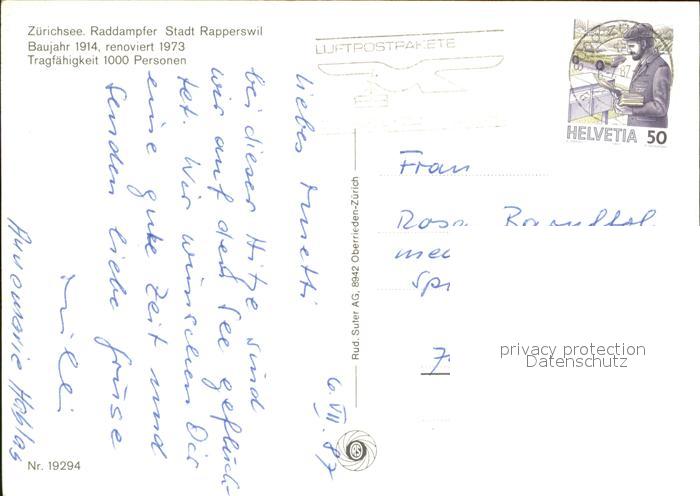 Zürichsee. Raddampfer Stadt Rapperswil
Baujahr 1914, renoviert 1973
Tragfähigkeit 1000 Personen
LUFTPOSTPAKETE
HELVETIA 50
6. VII. 87
Liebes Musetti
bei dieser Hitze sind
wir auf den See geflüch-
tet. Wir wünschen Dir
eine gute Zeit und
senden liebe Grüsse
Willi
Annemarie
Rud. Suter AG, 8942 Oberrieden-Zürich
Frau
Rosa
7
privacy protection
Datenschutz
Nr. 19294